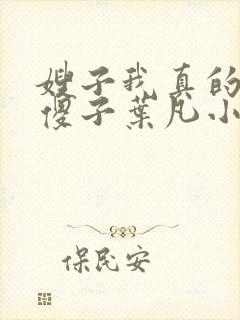 嫂子我真的
傻子葉凡小
保民安